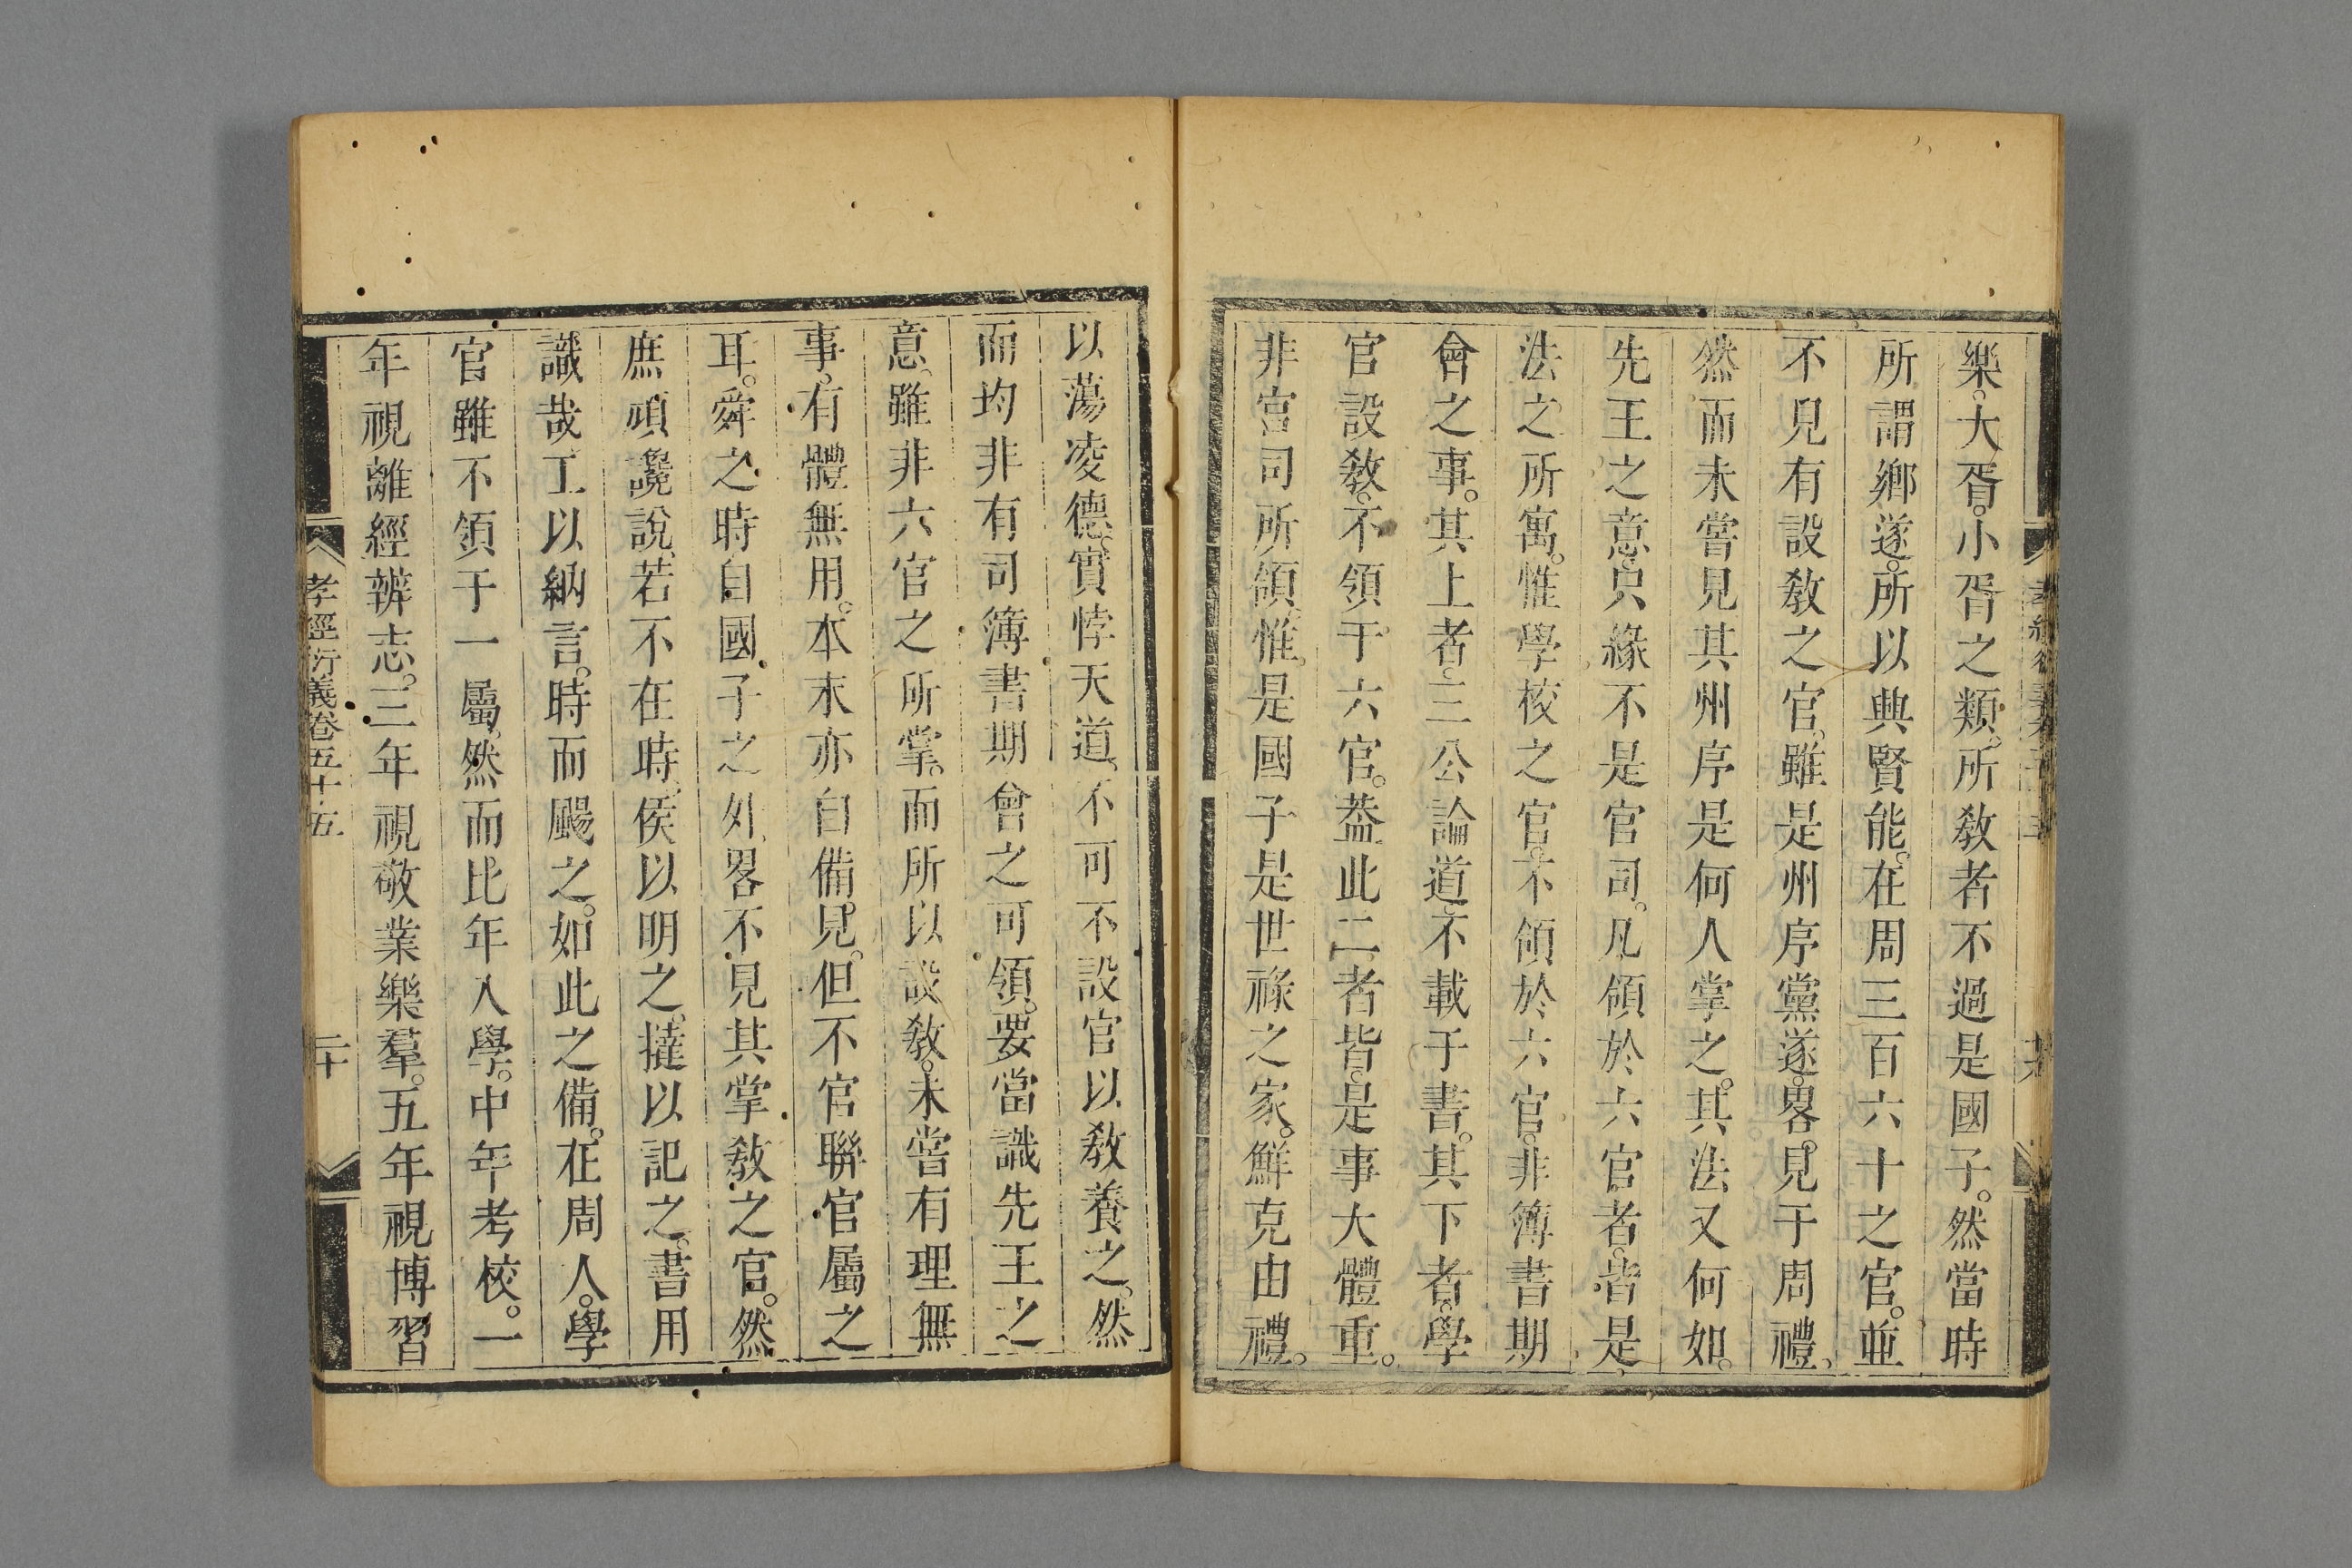 樂。大胥。小胥之類。所敎者不過是國子。然當時
所謂鄕遂。所以興賢能。在周三百六十之官。並
不見有設敎之官。雖是州序黨遂。畧。見于周禮。
然而未嘗見其州序是何人掌之。其法又何如。
先王之意。只緣不是官司。凡領於六官者。皆是
法之所寓。惟學校之官。不領於六官。非簿書期
會之事。其上者。三公論道。不載于書。其下者。學
官設敎。不領于六官。葢此二者皆。是事大體重。
非官司所領。惟。是國子是世祿之家。鮮克由禮。
以蕩凌德。實悖天道。不可不設官以敎養之。然
而均非有司簿書期會之可領。要當識先王之
意。雖非六官之所掌。而所以設敎。未嘗有理無
事。有體無用。本末亦自備。見。但不官聯官屬之
耳。舜之時自國子之外畧不見其掌敎之官。然
庶頑讒說。若不在時。侯以明之。撻以記之。書用
識哉工以納言。時而颺之。如此之備。在周人。學
官雖不領于一屬。然而比年入學。中年考校。一
年視離經辨志。三年視敬業樂羣。五年視博習
孝經衍義卷五十五
二十